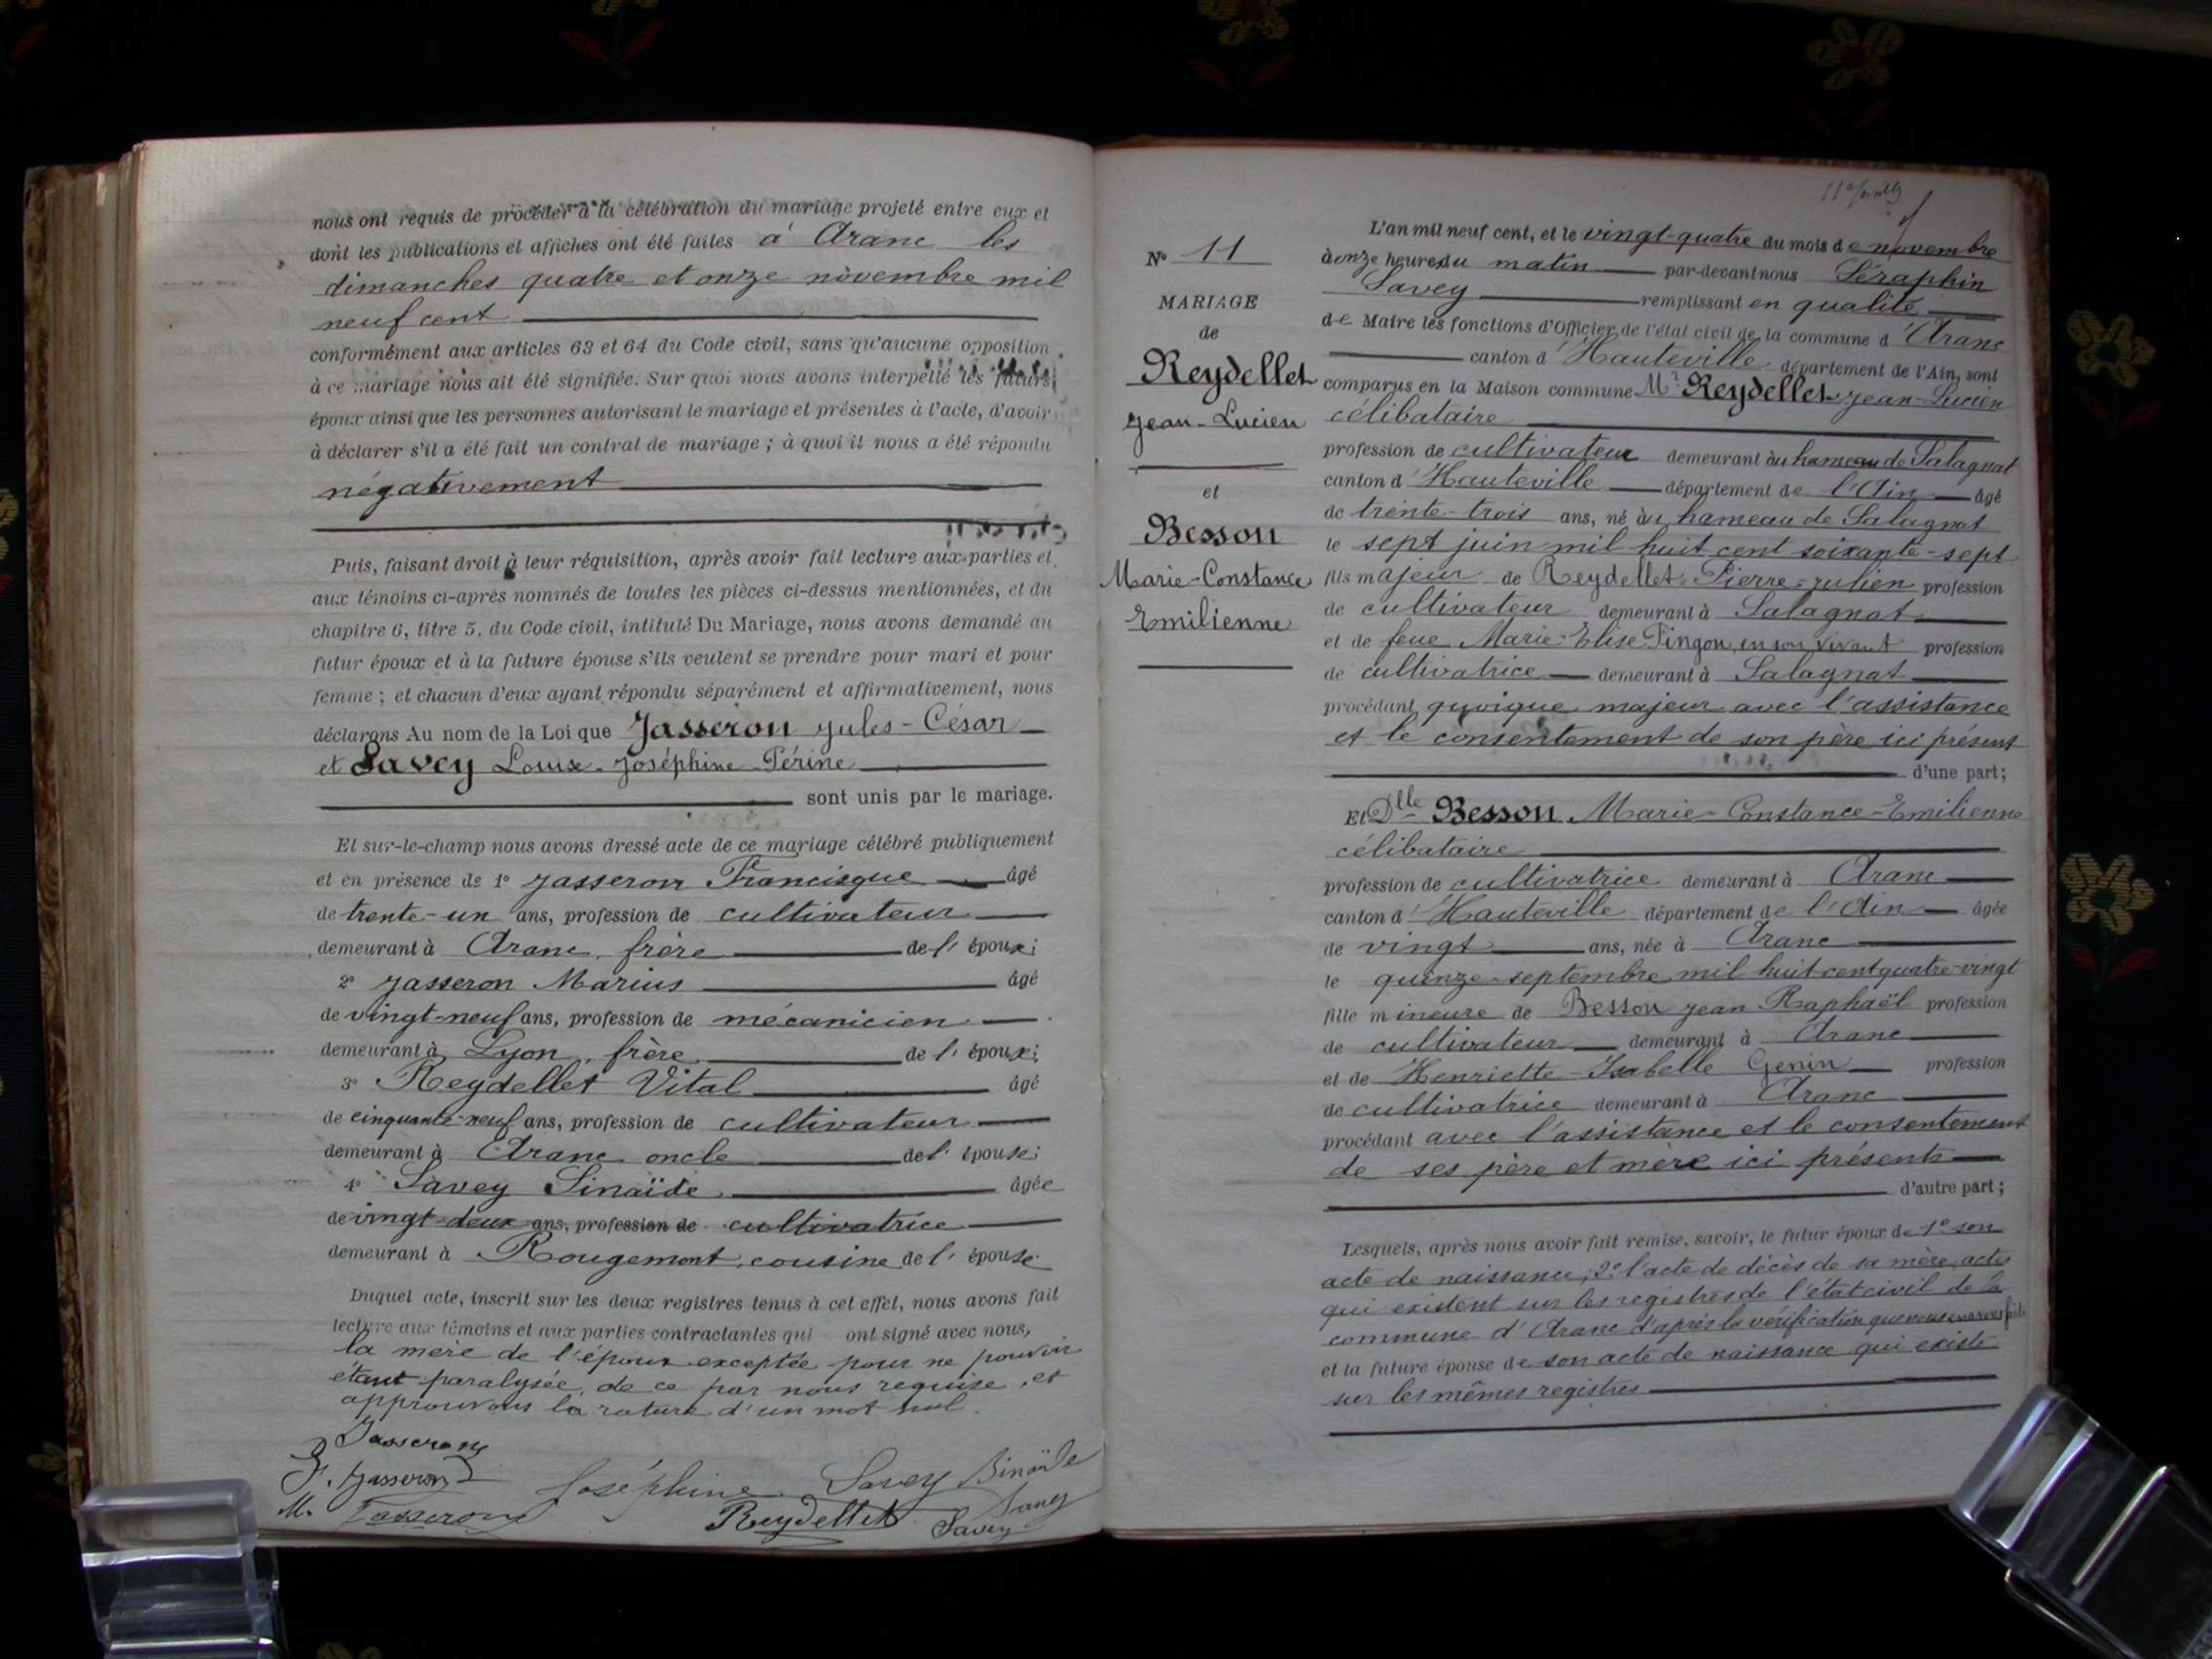 nous ont requis de procéder à la célébration du mariage projeté entre eux et
dont les publications et affiches ont été faites à Aranc les
dimanches quatre et onze novembre mil
neuf cent
conformément aux articles 63 et 64 du Code civil, sans qu'aucune opposition
à ce mariage nous ait été signifiée. Sur quoi nous avons interpellé les futurs
époux ainsi que les personnes autorisant le mariage et présentes à l'acte, d'avoir
à déclarer s'il a été fait un contrat de mariage ; à quoi il nous a été répondu
négativement
Puis, faisant droit à leur réquisition, après avoir fait lecture aux parties et
aux témoins ci-après nommés de toutes les pièces ci-dessus mentionnées, et du
chapitre 6, titre 5, du Code civil, intitulé Du Mariage, nous avons demandé au
futur époux et à la future épouse s'ils veulent se prendre pour mari et pour
femme ; et chacun d'eux ayant répondu séparément et affirmativement, nous
déclarons Au nom de la Loi que Jasseron Jules-César
et Savey Joséphine Périne
sont unis par le mariage.
Et sur-le-champ nous avons dressé acte de ce mariage célébré publiquement
et en présence de 1° Jasseron Francisque âgé
de trente-un ans, profession de cultivateur
demeurant à Aranc, frère de l' époux ;
2° Jasseron Marius âgé
de vingt-neuf ans, profession de mécanicien
demeurant à Lyon, frère de l' époux ;
3° Reydellet Vital âgé
de cinquante-neuf ans, profession de cultivateur
demeurant à Aranc oncle de l' épouse ;
4° Savey Sinaïde âgée
de vingt-deux ans, profession de cultivatrice
demeurant à Rougemont, cousine de l' épouse
Duquel acte, inscrit sur les deux registres tenus à cet effet, nous avons fait
lecture aux témoins et aux parties contractantes qui ont signé avec nous,
la mère de l'époux exceptée pour ne pouvoir
étant paralysée, de ce par nous requise, et
approuvons la rature d'un mot nul.
Jasseron
F. Jasseron
Joséphine Savey Sinaïde
M. Jasseron Reydellet Savey Savey
N° 11
MARIAGE
de
Reydellet
Jean-Lucien
et
Besson
Marie-Constance
Emilienne
L'an mil neuf cent, et le vingt-quatre du mois de novembre
à onze heures du matin par-devant nous Séraphin
Savey remplissant en qualité
de Maire les fonctions d'Officier de l'état civil de la commune d'Aranc
canton d'Hauteville département de l'Ain, sont
comparus en la Maison commune Mr Reydellet Jean-Lucien
célibataire
profession de cultivateur demeurant au hameau de Salagnat
canton d'Hauteville département de l'Ain âgé
de trente-trois ans, né au hameau de Salagnat
le sept juin mil huit cent soixante-sept
fils majeur de Reydellet Pierre-Julien profession
de cultivateur demeurant à Salagnat
et de feue Marie-Elise Pingon, en son vivant profession
de cultivatrice demeurant à Salagnat
procédant quoique majeur avec l'assistance
et le consentement de son père ici présent
d'une part ;
Et Dlle Besson Marie-Constance-Emilienne
célibataire
profession de cultivatrice demeurant à Aranc
canton d'Hauteville département de l'Ain âgée
de vingt ans, née à Aranc
le quinze septembre mil huit cent quatre-vingt
fille mineure de Besson Jean Raphaël profession
de cultivateur demeurant à Aranc
et de Henriette-Isabelle Genin profession
de cultivatrice demeurant à Aranc
procédant avec l'assistance et le consentement
de ses père et mère ici présents
d'autre part ;
Lesquels, après nous avoir fait remise, savoir, le futur époux de 1° son
acte de naissance ; 2° l'acte de décès de sa mère, actes
qui existent sur les registres de l'état civil de la
commune d'Aranc d'après la vérification que nous en avons faite
et la future épouse de son acte de naissance qui existe
sur les mêmes registres